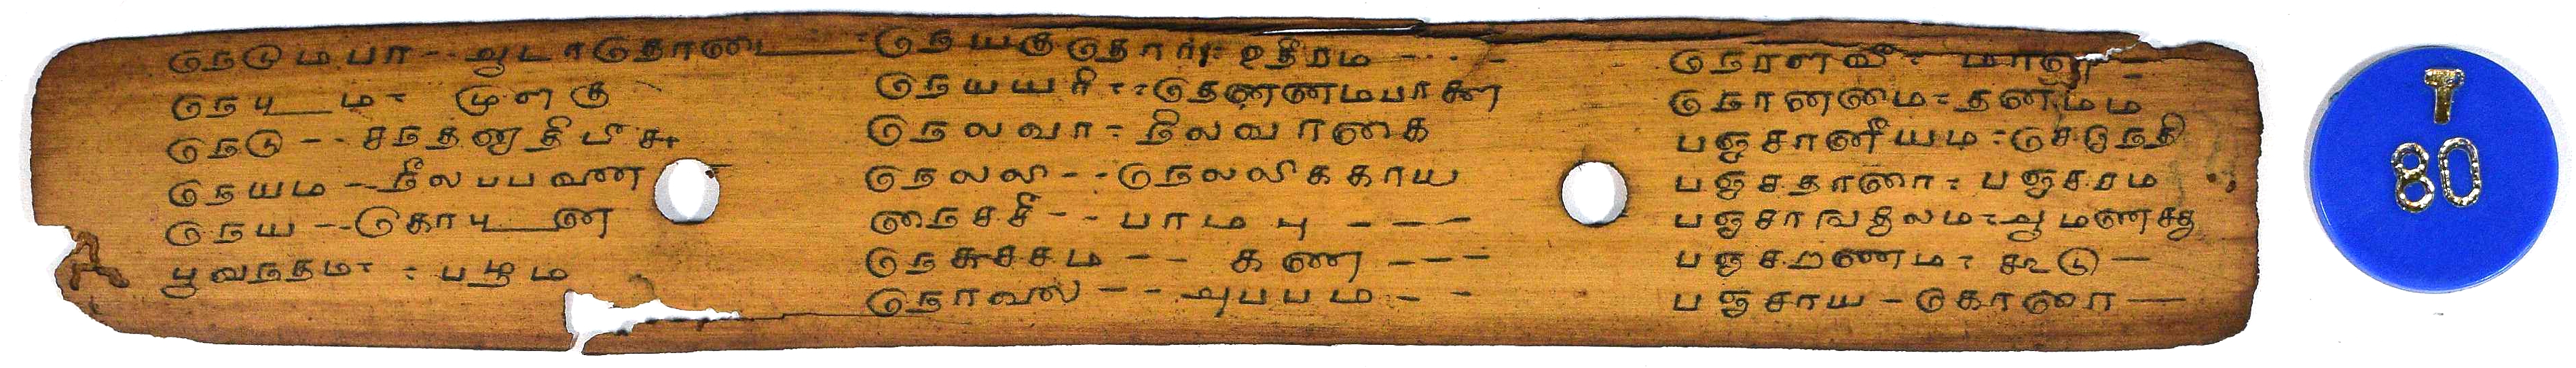 நெடும்பா - ஆடாதொடை
நெபுடம = முளகு
நெடு - - சந்தனாதிபிசு
நெயம - நீலபபவண
நெய - - கொபுடன
பூவந்தம = = பழம
நெயகுதொர் = உதிரம - - -
நெயயரி = = தெணணமபாளை
நெலவா = நிலவாகை
நெலலி - - நெலலிககாய
நைசசி - - பாமபு - - -
நெசுசசம - - கண - - -
நொவல - - அபபம - -
நொளவி = மானு -
நொனமை = தனமம
பஞசானீயம = செநநதி
பஞசதாரை = பஞசசம
பஞசாஙதிலம = ஆமணககு
பஞசறணம = கூடு -
பஞசாய - கோரை -
T
80